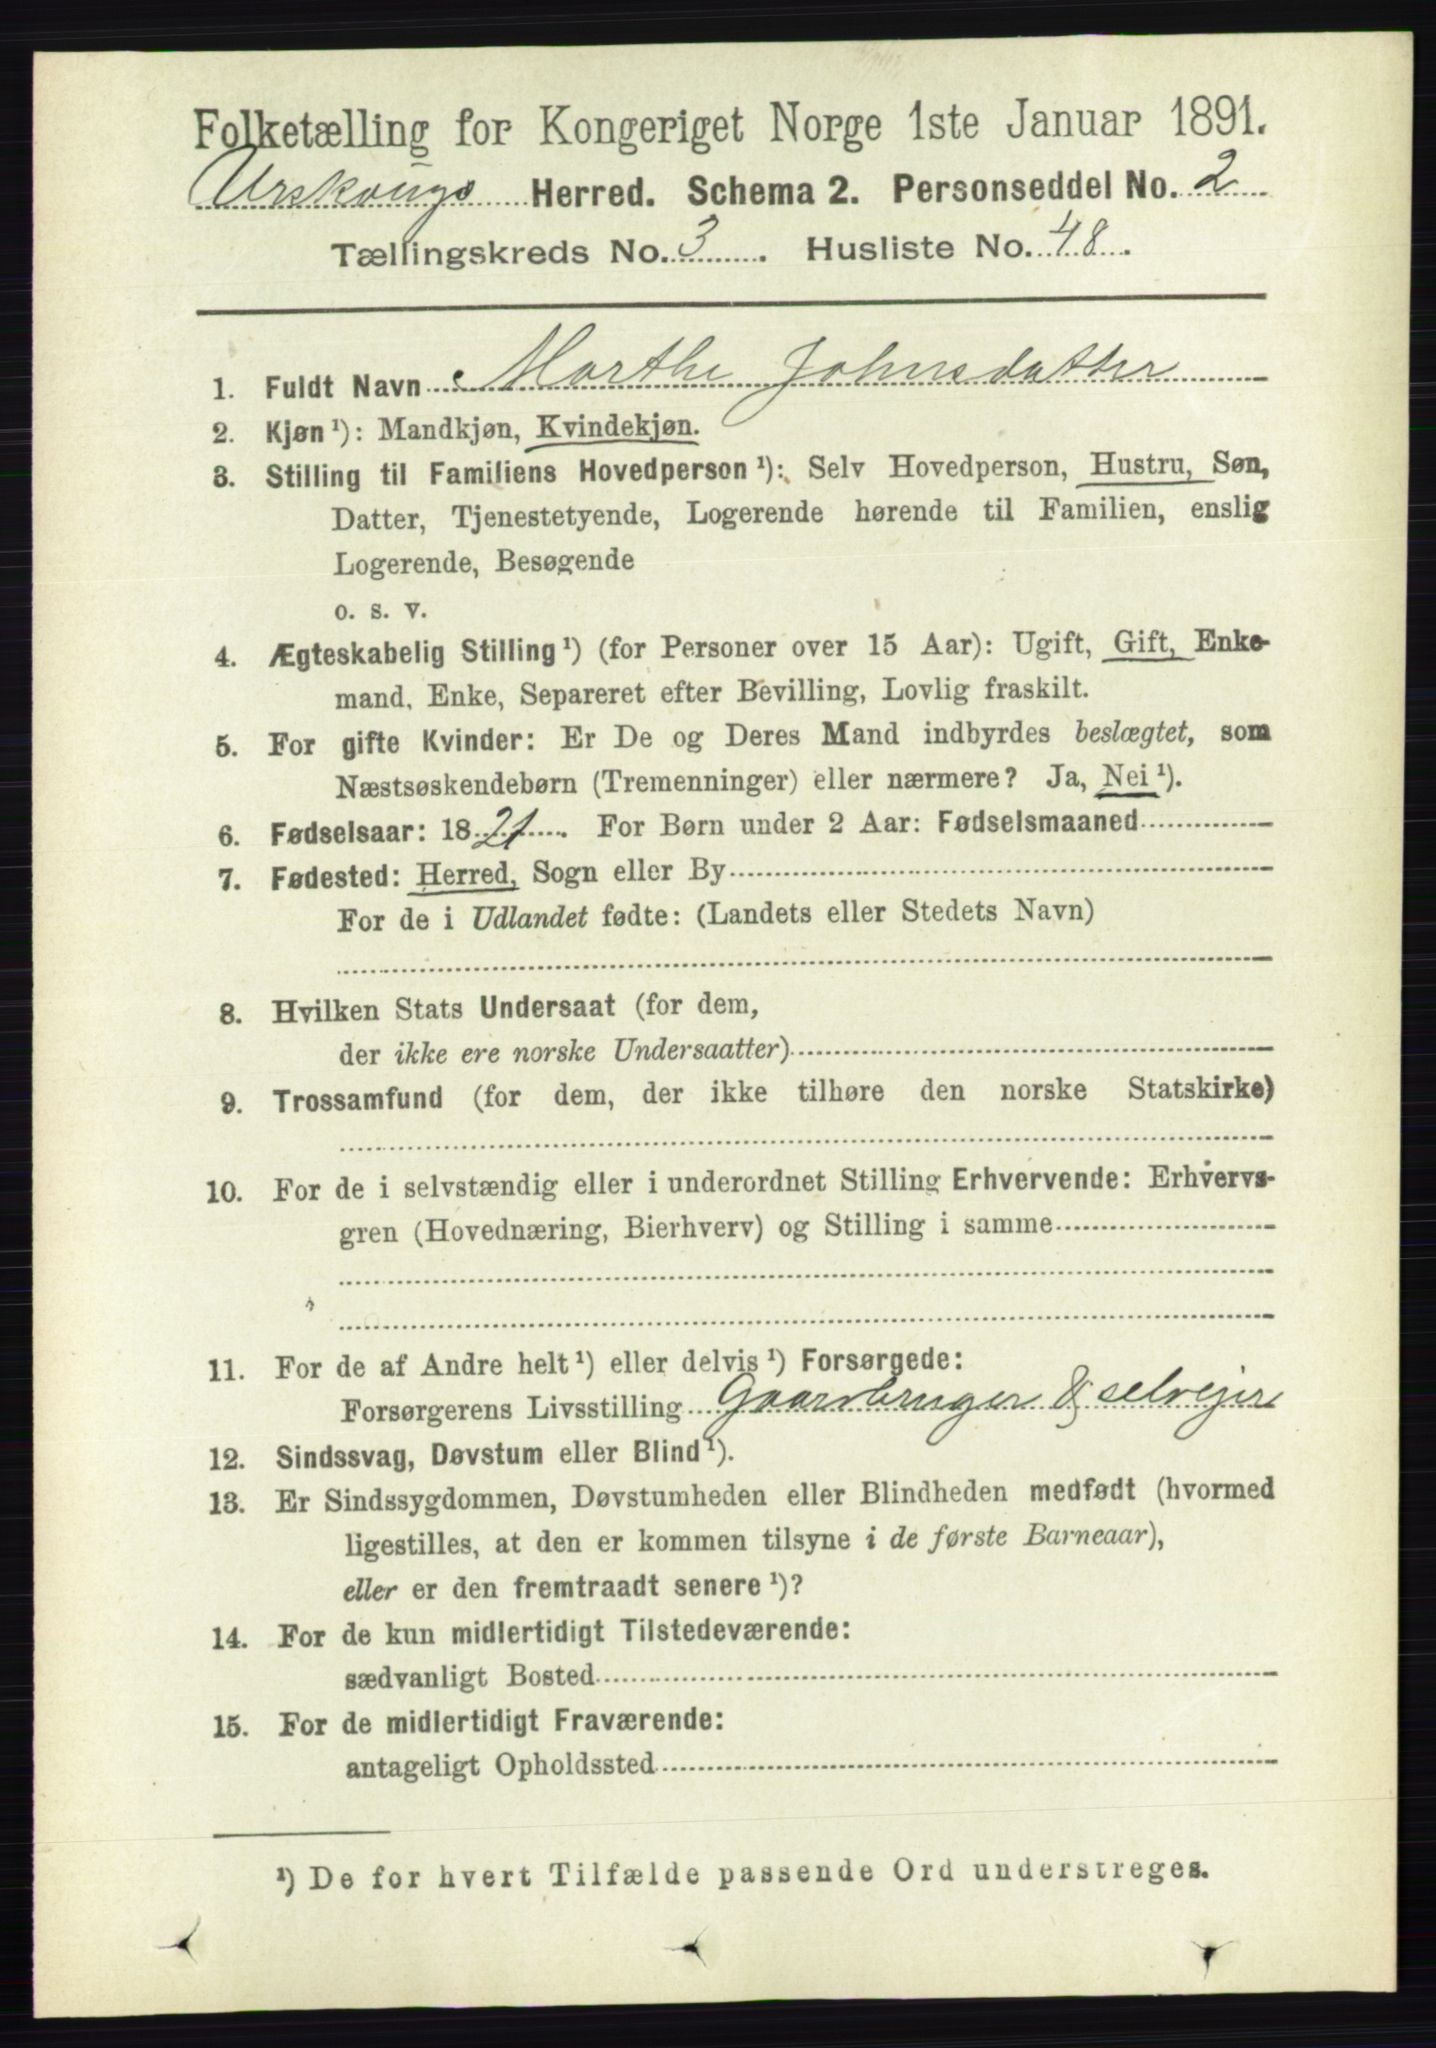 Folketælling for Kongeriget Norge 1ste Januar 1891.
Urskougs Herred. Schema 2. Personseddel No. 2
Tællingskreds No. 3. Husliste No. 48.
1. Fuldt Navn Marthe Johnsdatter
2. Kjøn ¹): Mandkjøn, Kvindekjøn.
3. Stilling til Familiens Hovedperson ¹): Selv Hovedperson, Hustru, Søn,
Datter, Tjenestetyende, Logerende hørende til Familien, enslig
Logerende, Besøgende
o. s. v.
4. Ægteskabelig Stilling ¹) (for Personer over 15 Aar): Ugift, Gift, Enke-
mand, Enke, Separeret efter Bevilling, Lovlig fraskilt.
5. For gifte Kvinder: Er De og Deres Mand indbyrdes beslægtet, som
Næstsøskendebørn (Tremenninger) eller nærmere? Ja, Nei ¹).
6. Fødselsaar: 1821. For Børn under 2 Aar: Fødselsmaaned
7. Fødested: Herred, Sogn eller By
For de i Udlandet fødte: (Landets eller Stedets Navn)
8. Hvilken Stats Undersaat (for dem,
der ikke ere norske Undersaatter)
9. Trossamfund (for dem, der ikke tilhøre den norske Statskirke)
10. For de i selvstændig eller i underordnet Stilling Erhvervende: Erhvervs-
gren (Hovednæring, Bierhverv) og Stilling i samme
11. For de af Andre helt ¹) eller delvis ¹) Forsørgede:
Forsørgerens Livsstilling Gaardbruger & selveier
12. Sindssvag, Døvstum eller Blind ¹).
13. Er Sindssygdommen, Døvstumheden eller Blindheden medfødt (hvormed
ligestilles, at den er kommen tilsyne i de første Barneaar),
eller er den fremtraadt senere ¹)?
14. For de kun midlertidigt Tilstedeværende:
sædvanligt Bosted
15. For de midlertidigt Fraværende:
antageligt Opholdssted
¹) De for hvert Tilfælde passende Ord understreges.